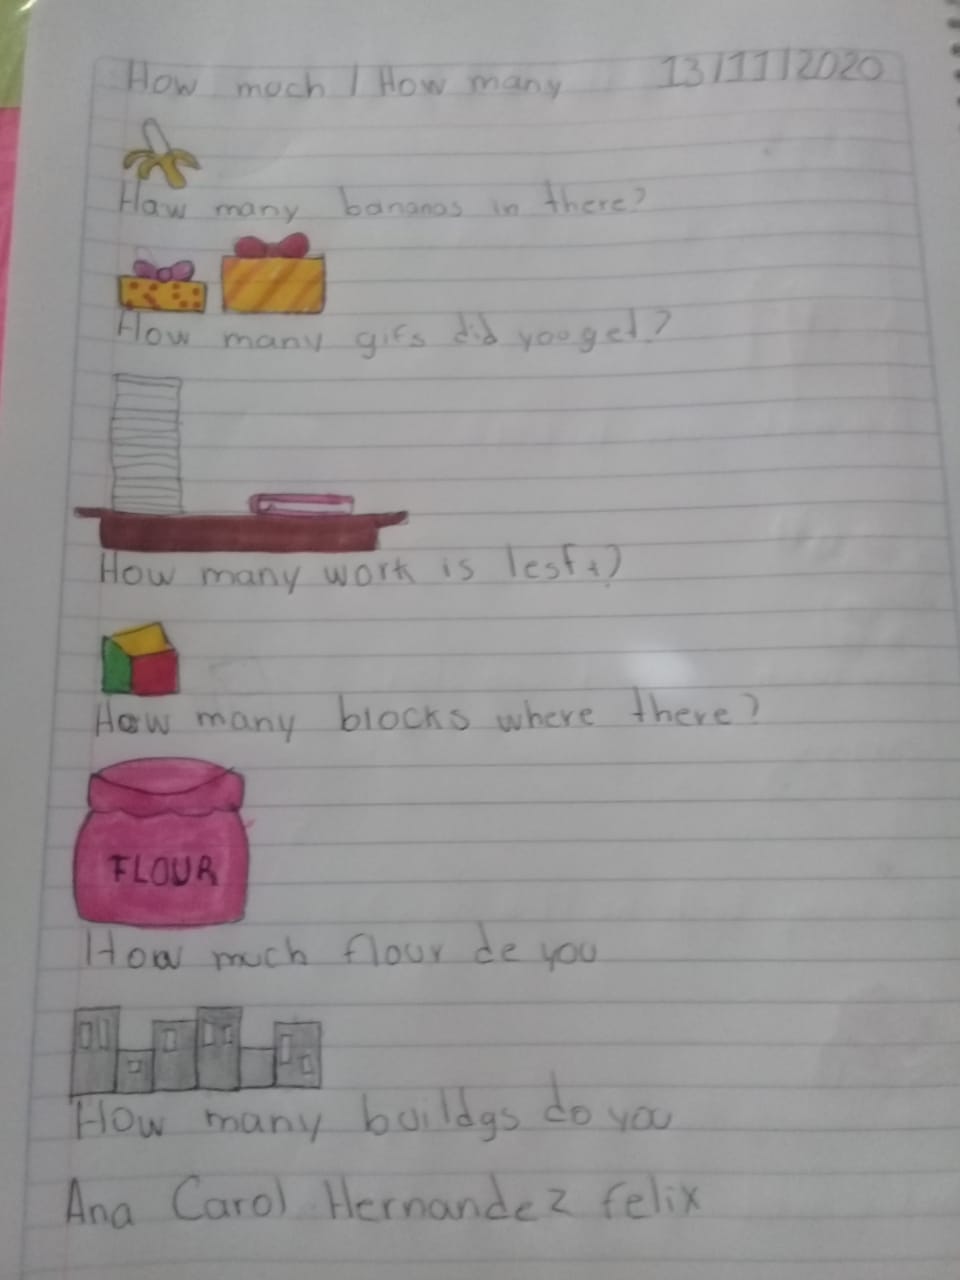 How moch / How many 13/11/2020
Haw many bananas in there?
How many gifs did yoo get?
How many work is lesft?
How many blocks where there?
FLOUR
How much flour de you
How many buildgs do you
Ana Carol Hernandez felix